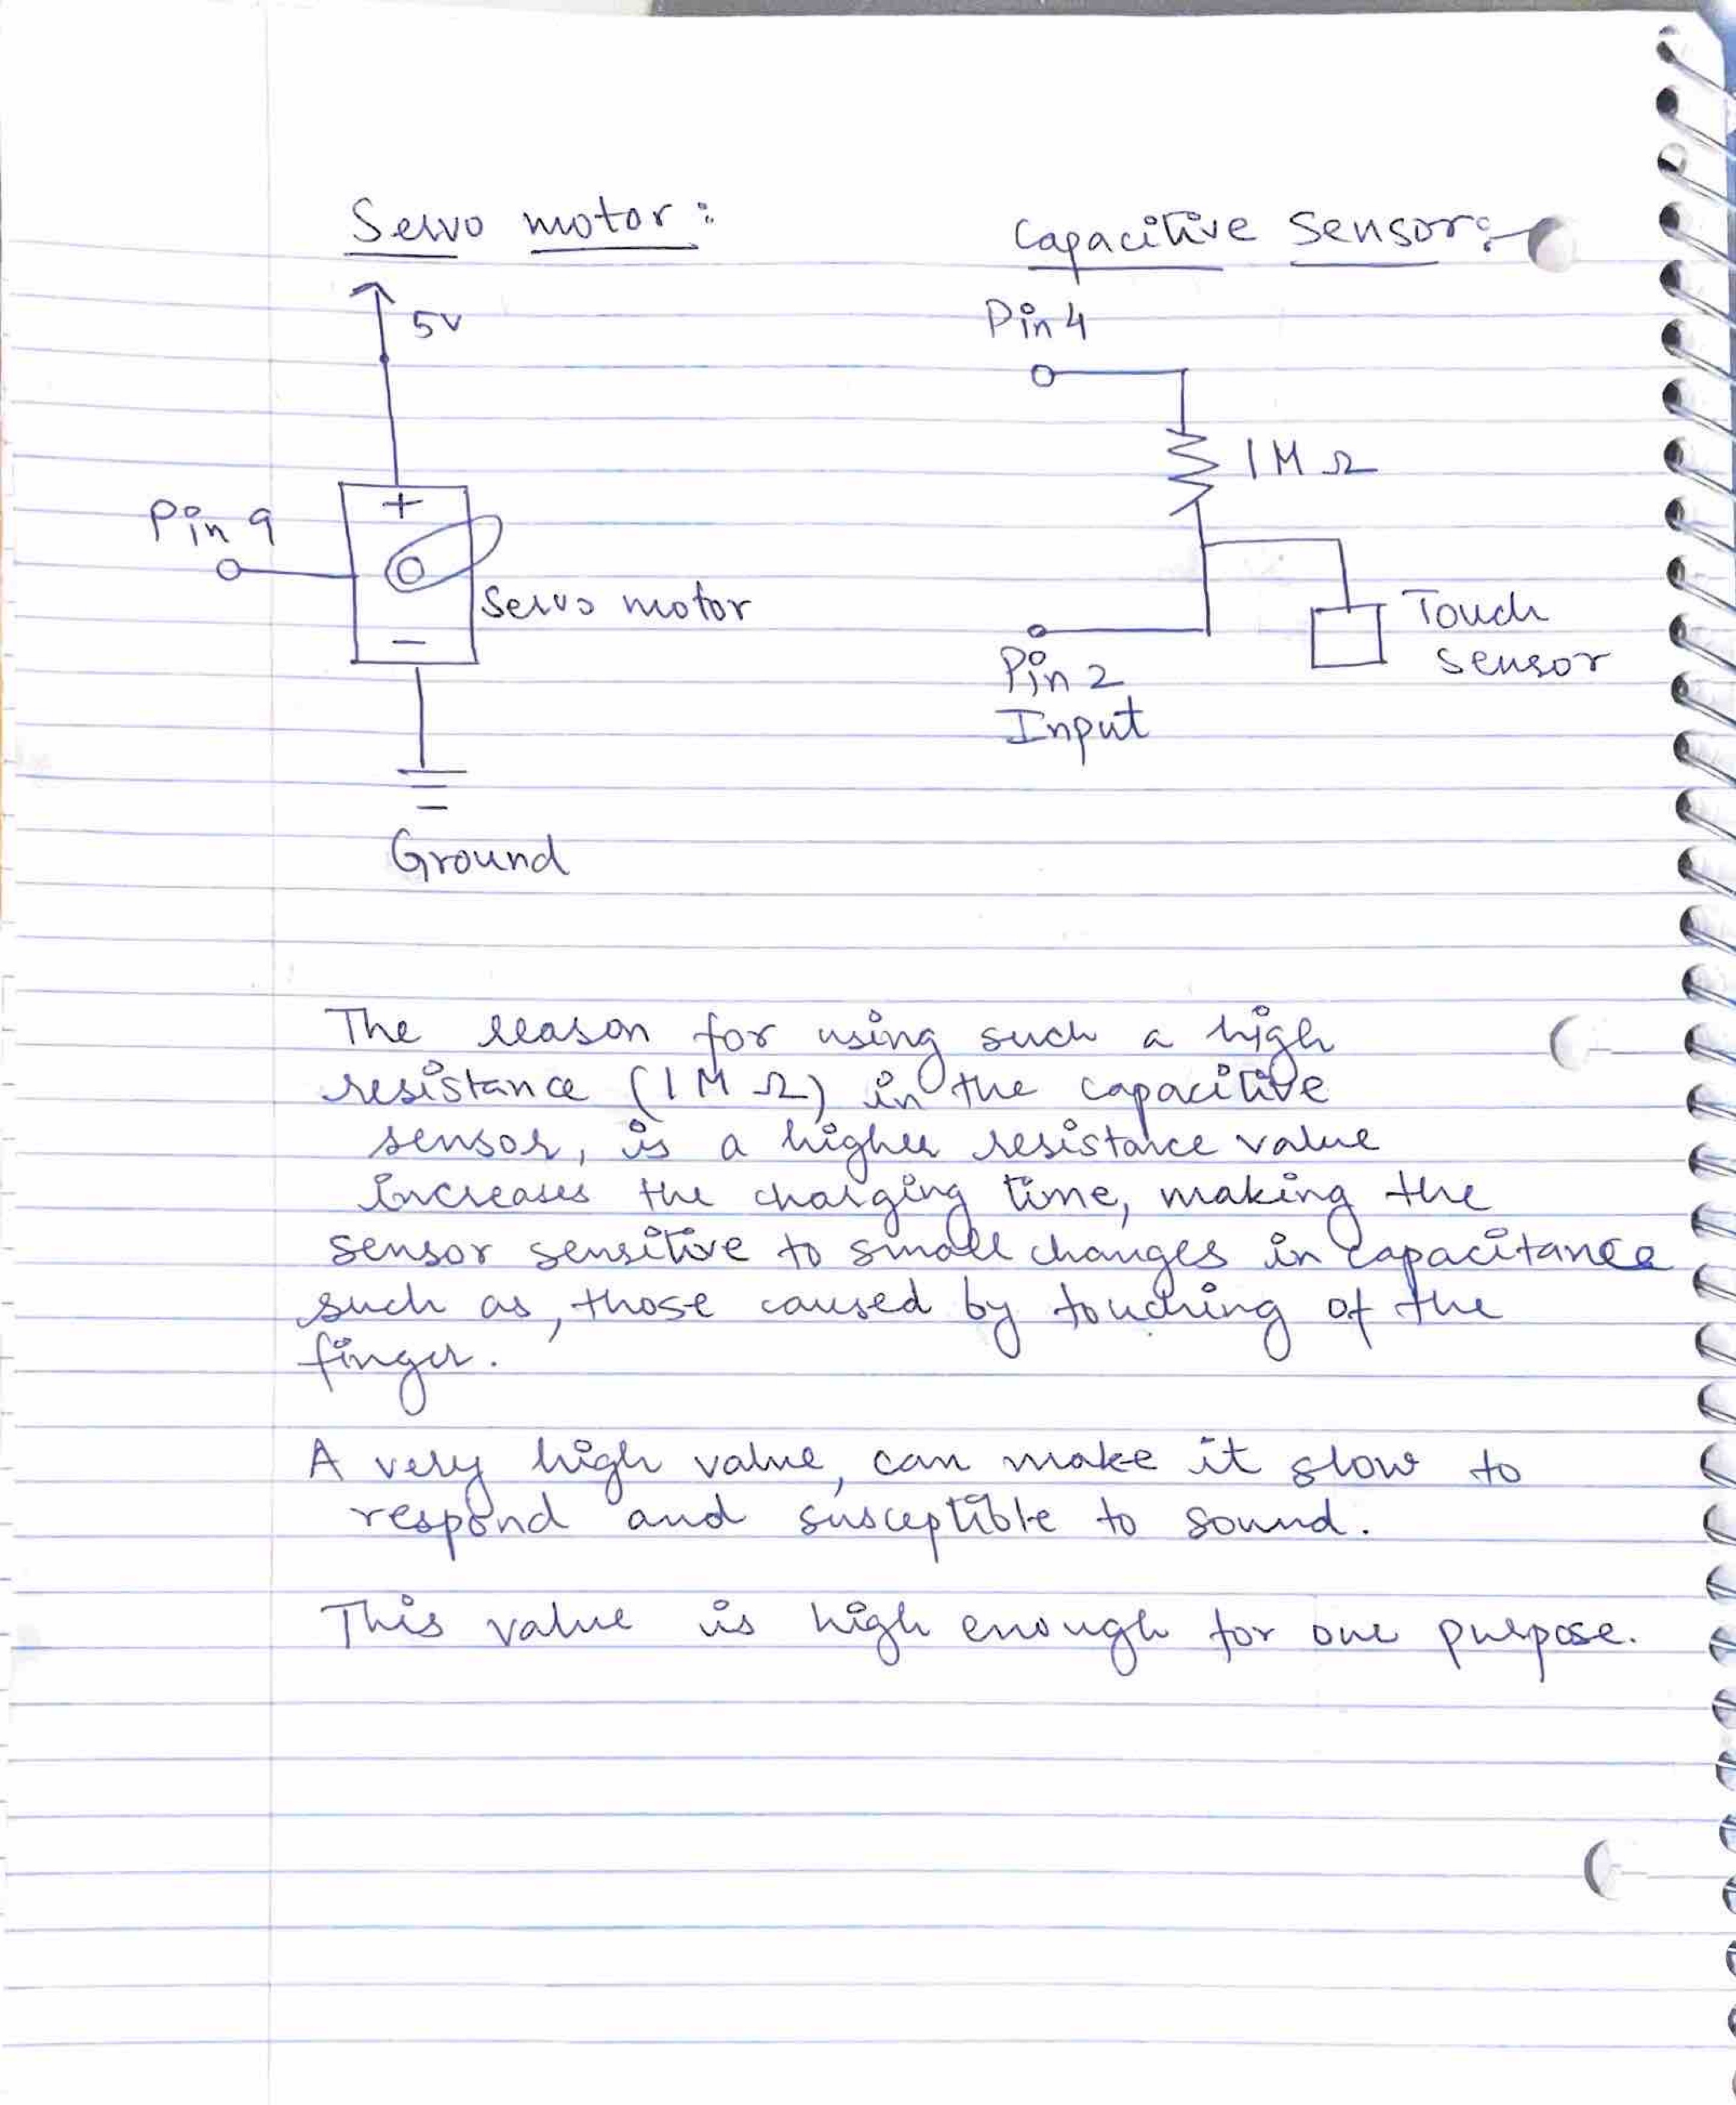 Servo motor:
5V
Pin 9
+
Servo motor
−
Ground
Capacitive Sensor:
Pin 4
1M Ω
Touch
sensor
Pin 2
Input
The reason for using such a high
resistance (1M Ω) in the capacitive
sensor, is a higher resistance value
increases the charging time, making the
sensor sensitive to small changes in capacitance
such as, those caused by touching of the
finger.
A very high value, can make it slow to
respond and susceptible to sound.
This value is high enough for our purpose.